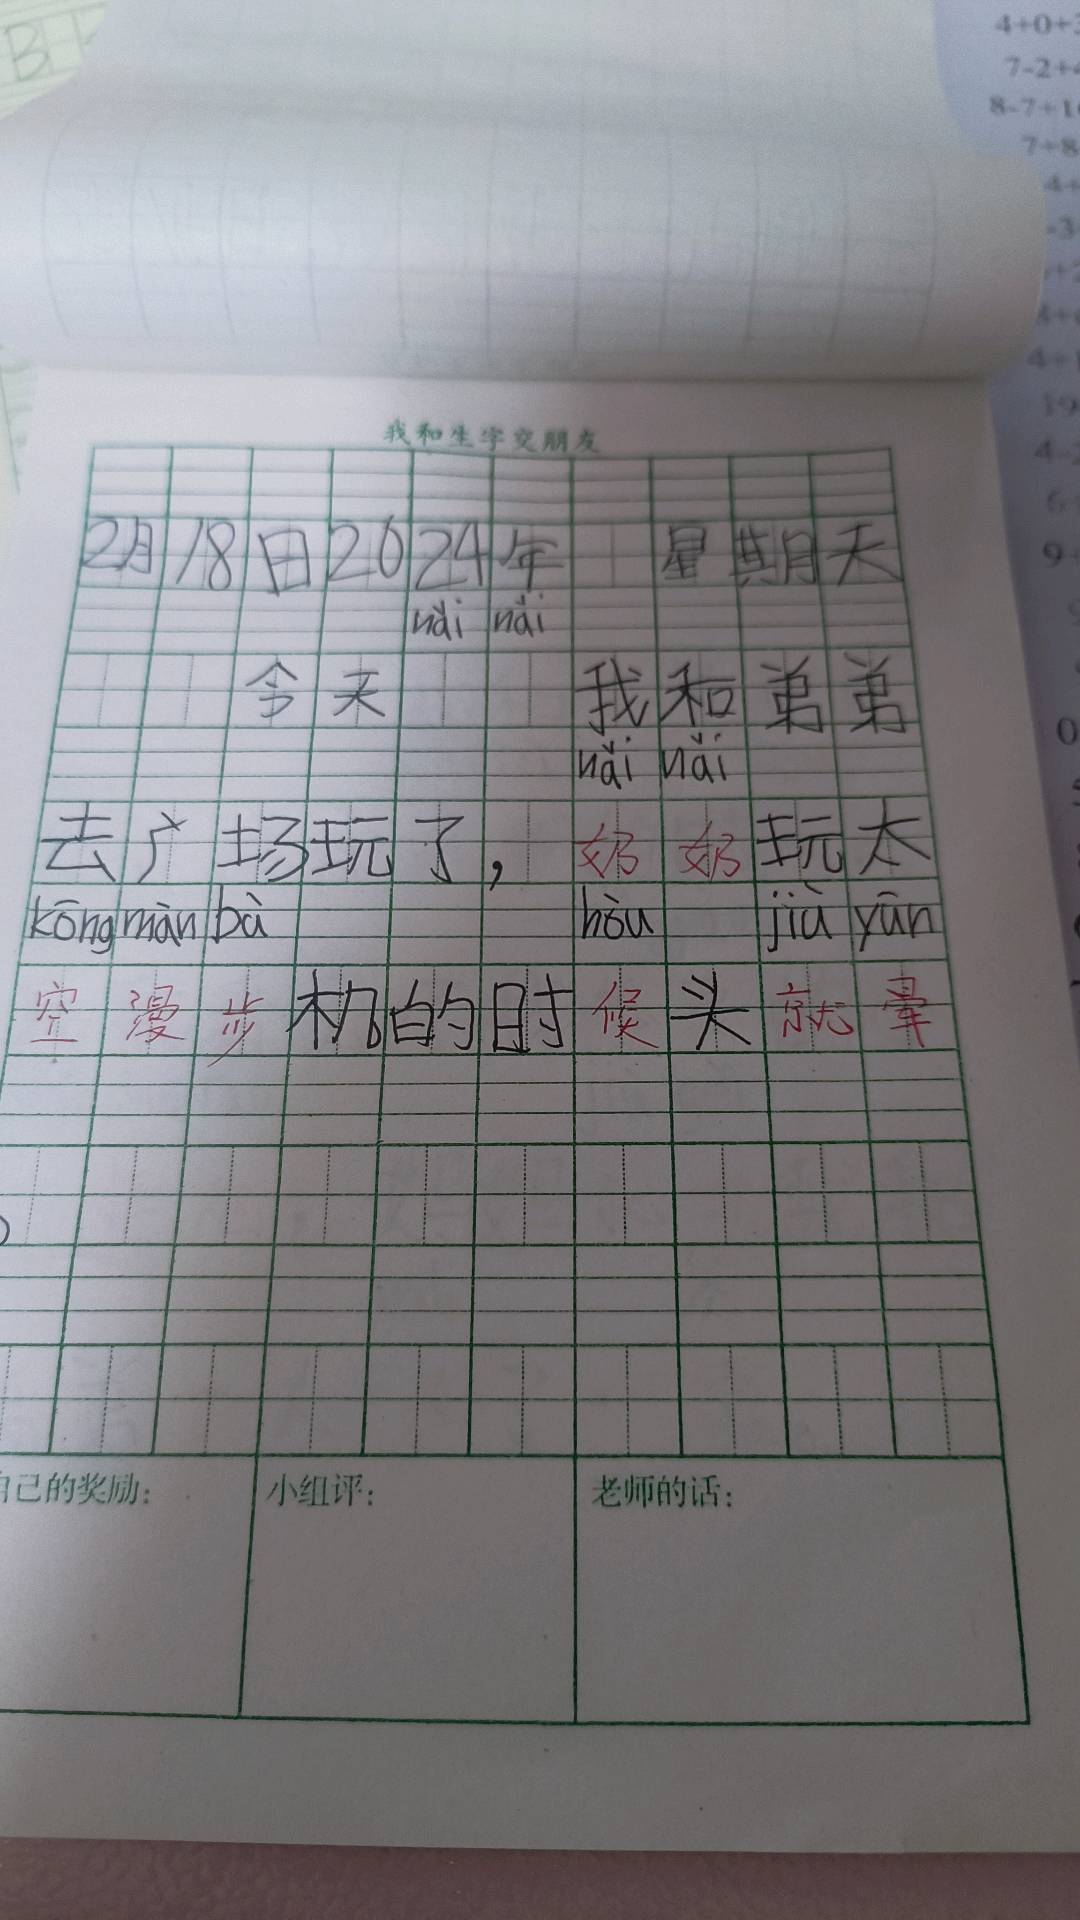 B
4+0+
7-2+4
8-7+1
7+8
我和生字交朋友
2月18日2024年 星期天
nǎi nǎi
今天 我和弟弟
nǎi nǎi
去广场玩了，奶奶玩太
kōng màn bù hòu jiù yūn
空漫步机的时候头就晕
。
自己的奖励：
小组评：
老师的话：